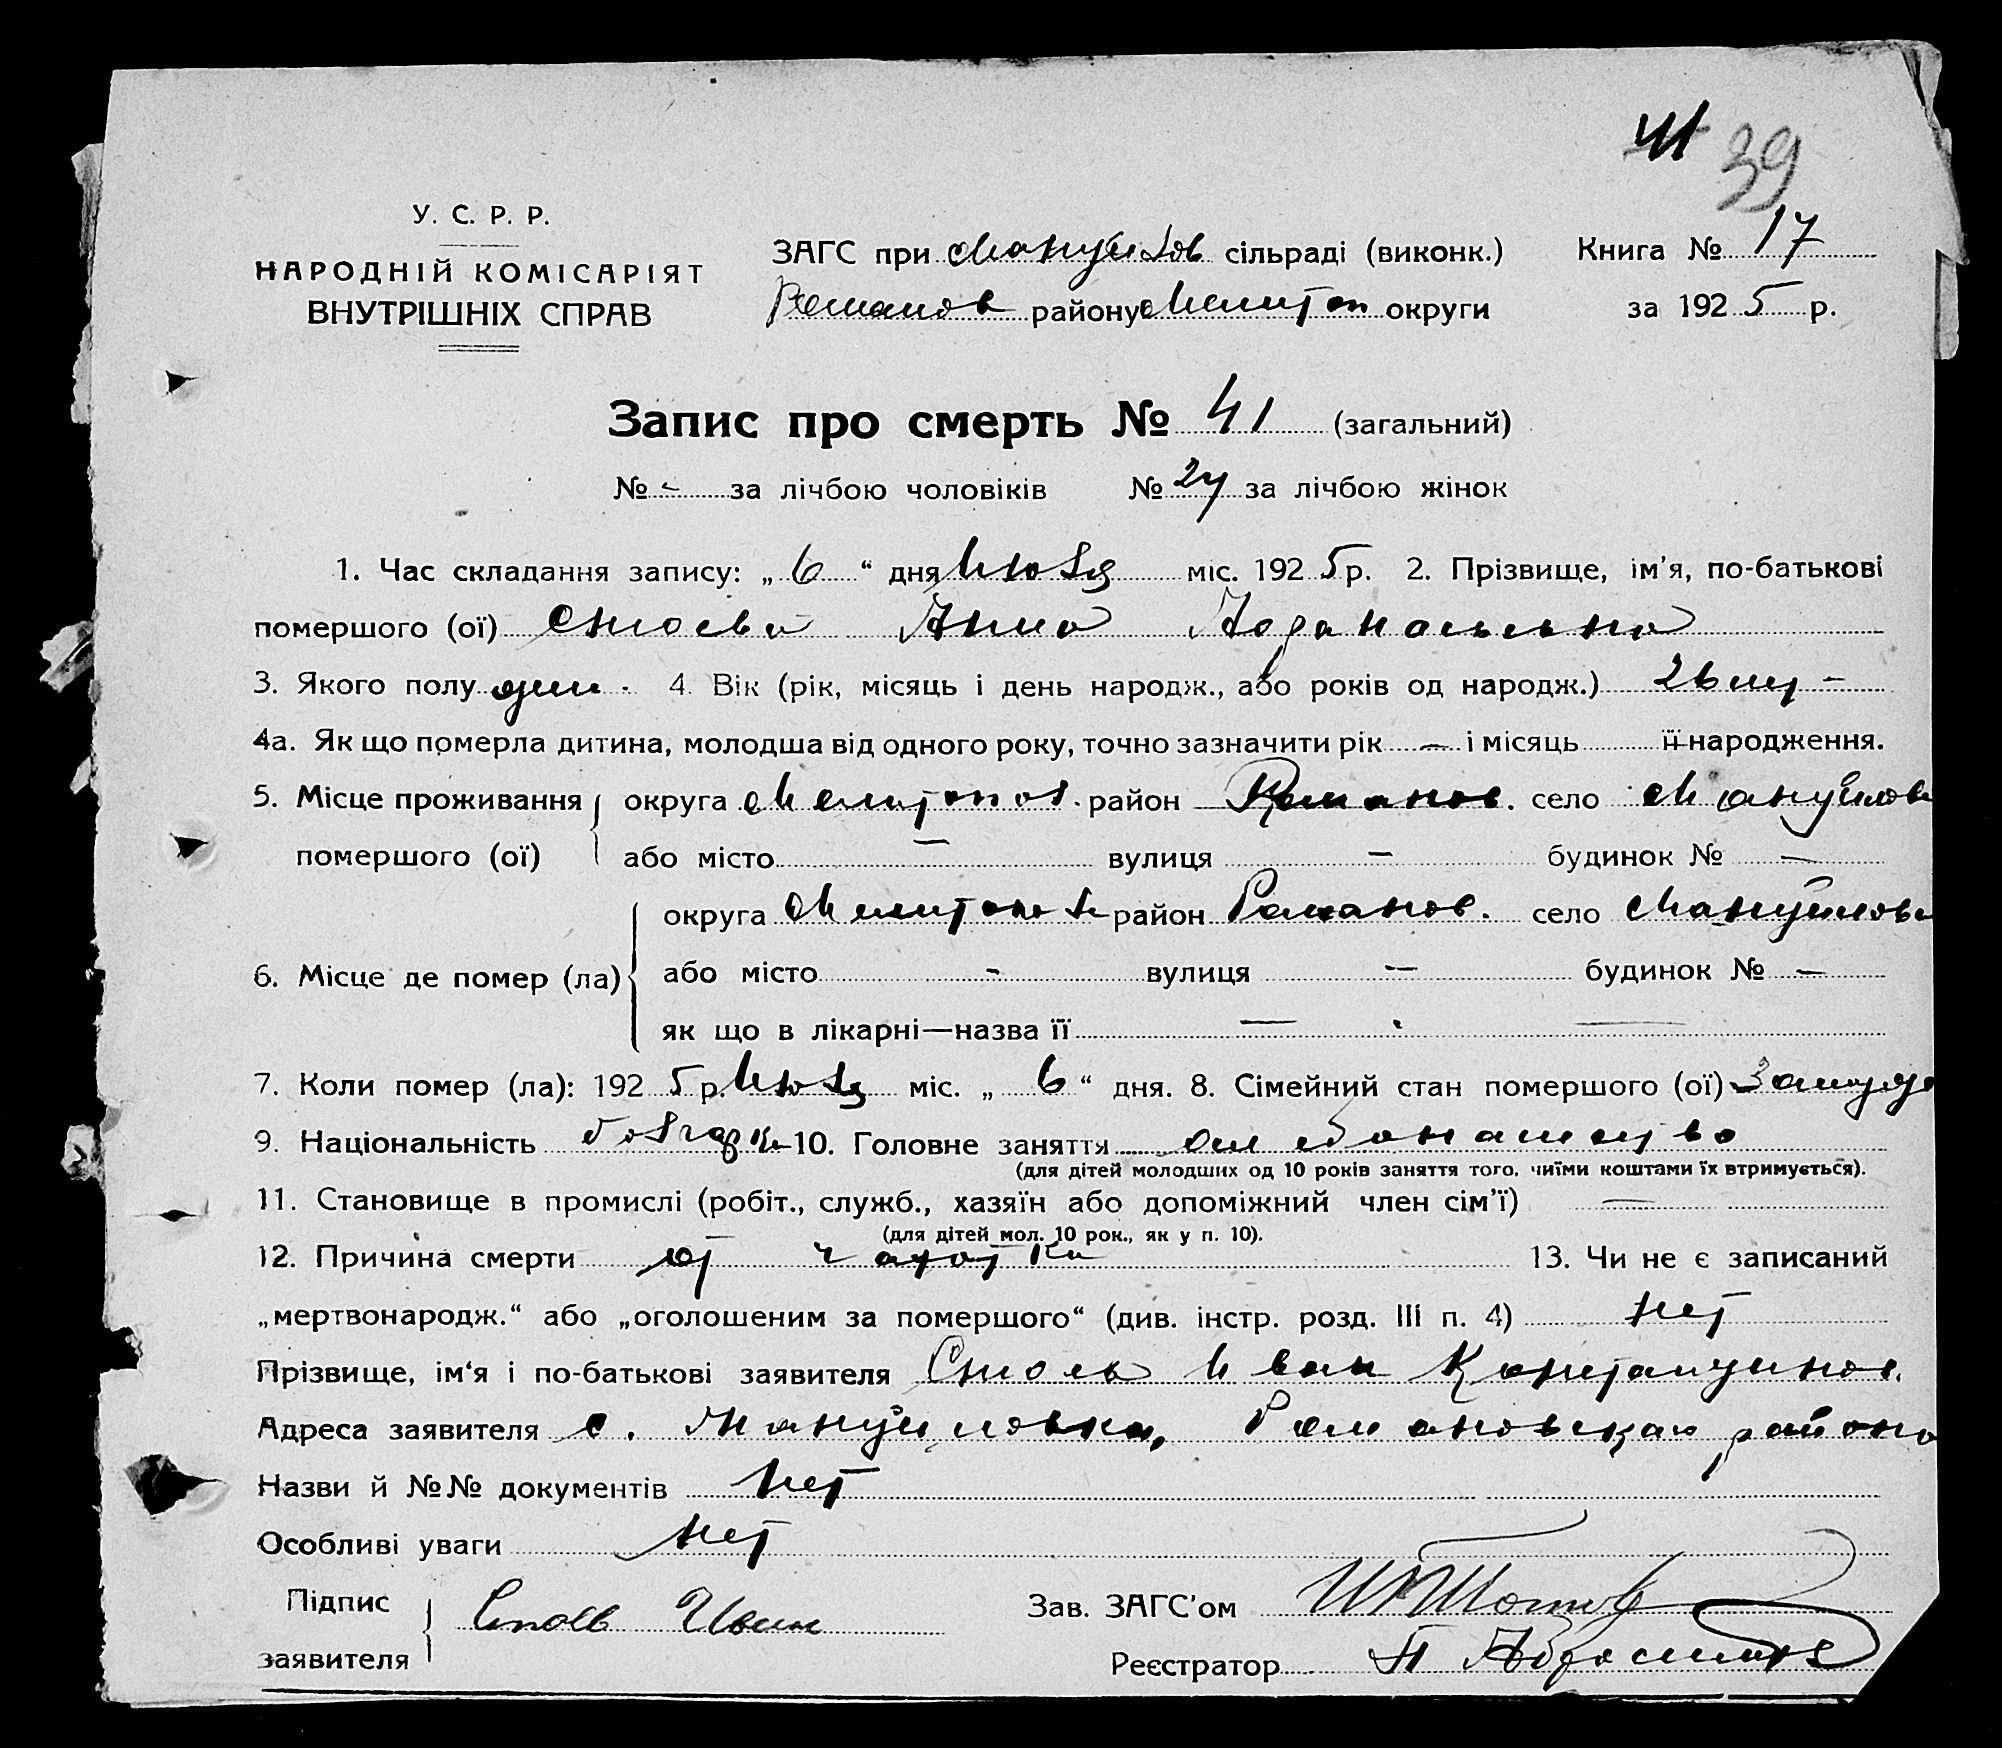 41 39
У. С. Р. Р.
НАРОДНІЙ КОМІСАРІЯТ
ВНУТРІШНІХ СПРАВ
ЗАГС при Мануйлов сільраді (виконк.) Книга № 17
Романов району Мелитоп округи за 1925 р.
Запис про смерть № 41 (загальний)
№ - за лічбою чоловіків № 24 за лічбою жінок
1. Час складання запису: „6“ дня Июля міс. 1925 р. 2. Прізвище, ім'я, по-батькові
помершого (ої) Стоева Анна
3. Якого полу жен. 4. Вік (рік, місяць і день народж., або років од народж.) 26 лет -
4а. Як що померла дитина, молодша від одного року, точно зазначити рік — і місяць її народження.
5. Місце проживання округа Мелитопол. район Романов. село Мануйловк
помершого (ої) або місто — вулиця — будинок № —
округа Мелитопол район Романов. село Мануйловк
6. Місце де помер (ла) або місто - вулиця — будинок № —
як що в лікарні—назва її — —
7. Коли помер (ла): 1925 р. Июля міс. „6“ дня. 8. Сімейний стан помершого (ої) Замуж
9. Національність болгарк 10. Головне заняття
(для дітей молодших од 10 років заняття того, чиїми коштами їх втримується).
11. Становище в промислі (робіт., служб., хазяїн або допоміжний член сім'ї) —
(для дітей мол. 10 рок., як у п. 10).
12. Причина смерти от чахотки 13. Чи не є записаний
„мертвонародж.“ або „оголошеним за помершого“ (див. інстр. розд. III п. 4) нет
Прізвище, ім'я і по-батькові заявителя Стоев Иван Константинов.
Адреса заявителя с. Мануйловка, Романовскаго района
Назви й №№ документів нет
Особливі уваги нет
Підпис заявителя Стоев Иван Зав. ЗАГС'ом
Реєстратор П